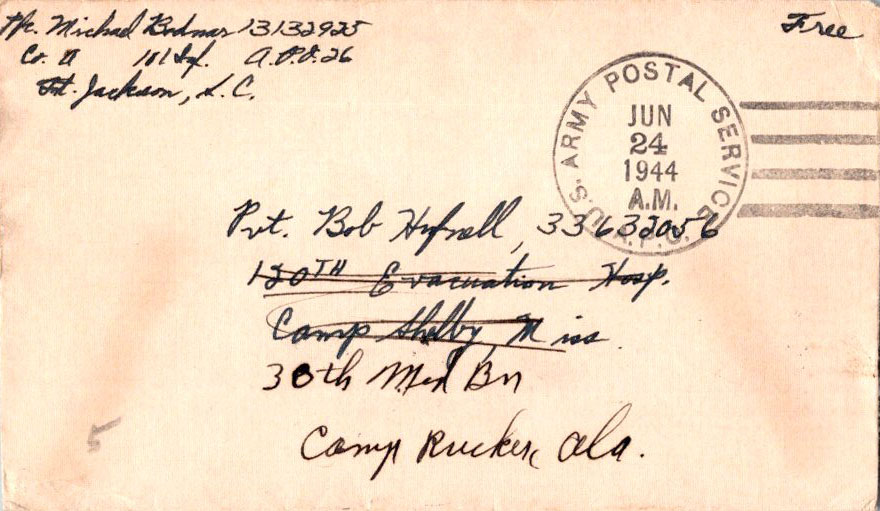 Pfc. Michael Bodnar 13132925
Co. A 101 Inf. A.P.O. 26
Ft. Jackson, S.C.
Free
U.S. ARMY POSTAL SERVICE
A.P.O.
JUN
24
1944
A.M.
Pvt. Bob 33632056
120TH Evacuation Hosp.
Camp Shelby, Miss
30th Med Bn
Camp Rucker, Ala.
5